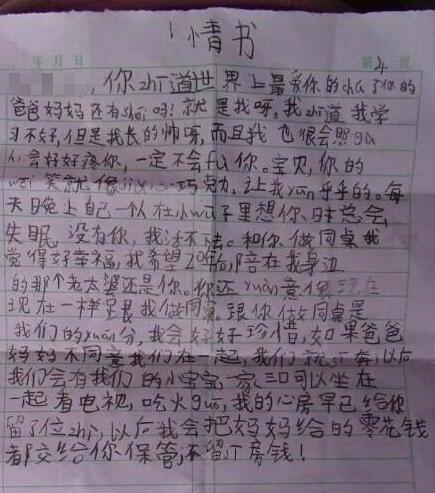 情书
年 月 日 第 页
,你zhi道世界上最爱你的chu了你的
爸爸妈妈还有shei吗!就是我呀。我zhi道我学
习不好,但是我长的帅呀,而且我也很会照gu
人,会好好疼你,一定不会fu你。宝贝,你的
wei笑就像jia心巧克力,让我yun乎乎的。每
天晚上自己一人在小wu子里想你时总会
失眠,没有你,我活不下去。和你做同桌我
觉得好幸福,我希望20年后,陪在我身边
的那个老太婆还是你。你还yuan意像现在
现在一样足艮我做同桌。跟你做同桌是
我们的yuan分,我会好好珍惜,如果爸爸
妈妈不同意我们在一起,我们就si奔,以后
我们会有我们的小宝宝,一家三口可以坐在
一起看电视,吃火guo,我的心房早已给你
留了位zhi,以后我会把妈妈给的零花钱
都交给你保管,不留丁房钱!